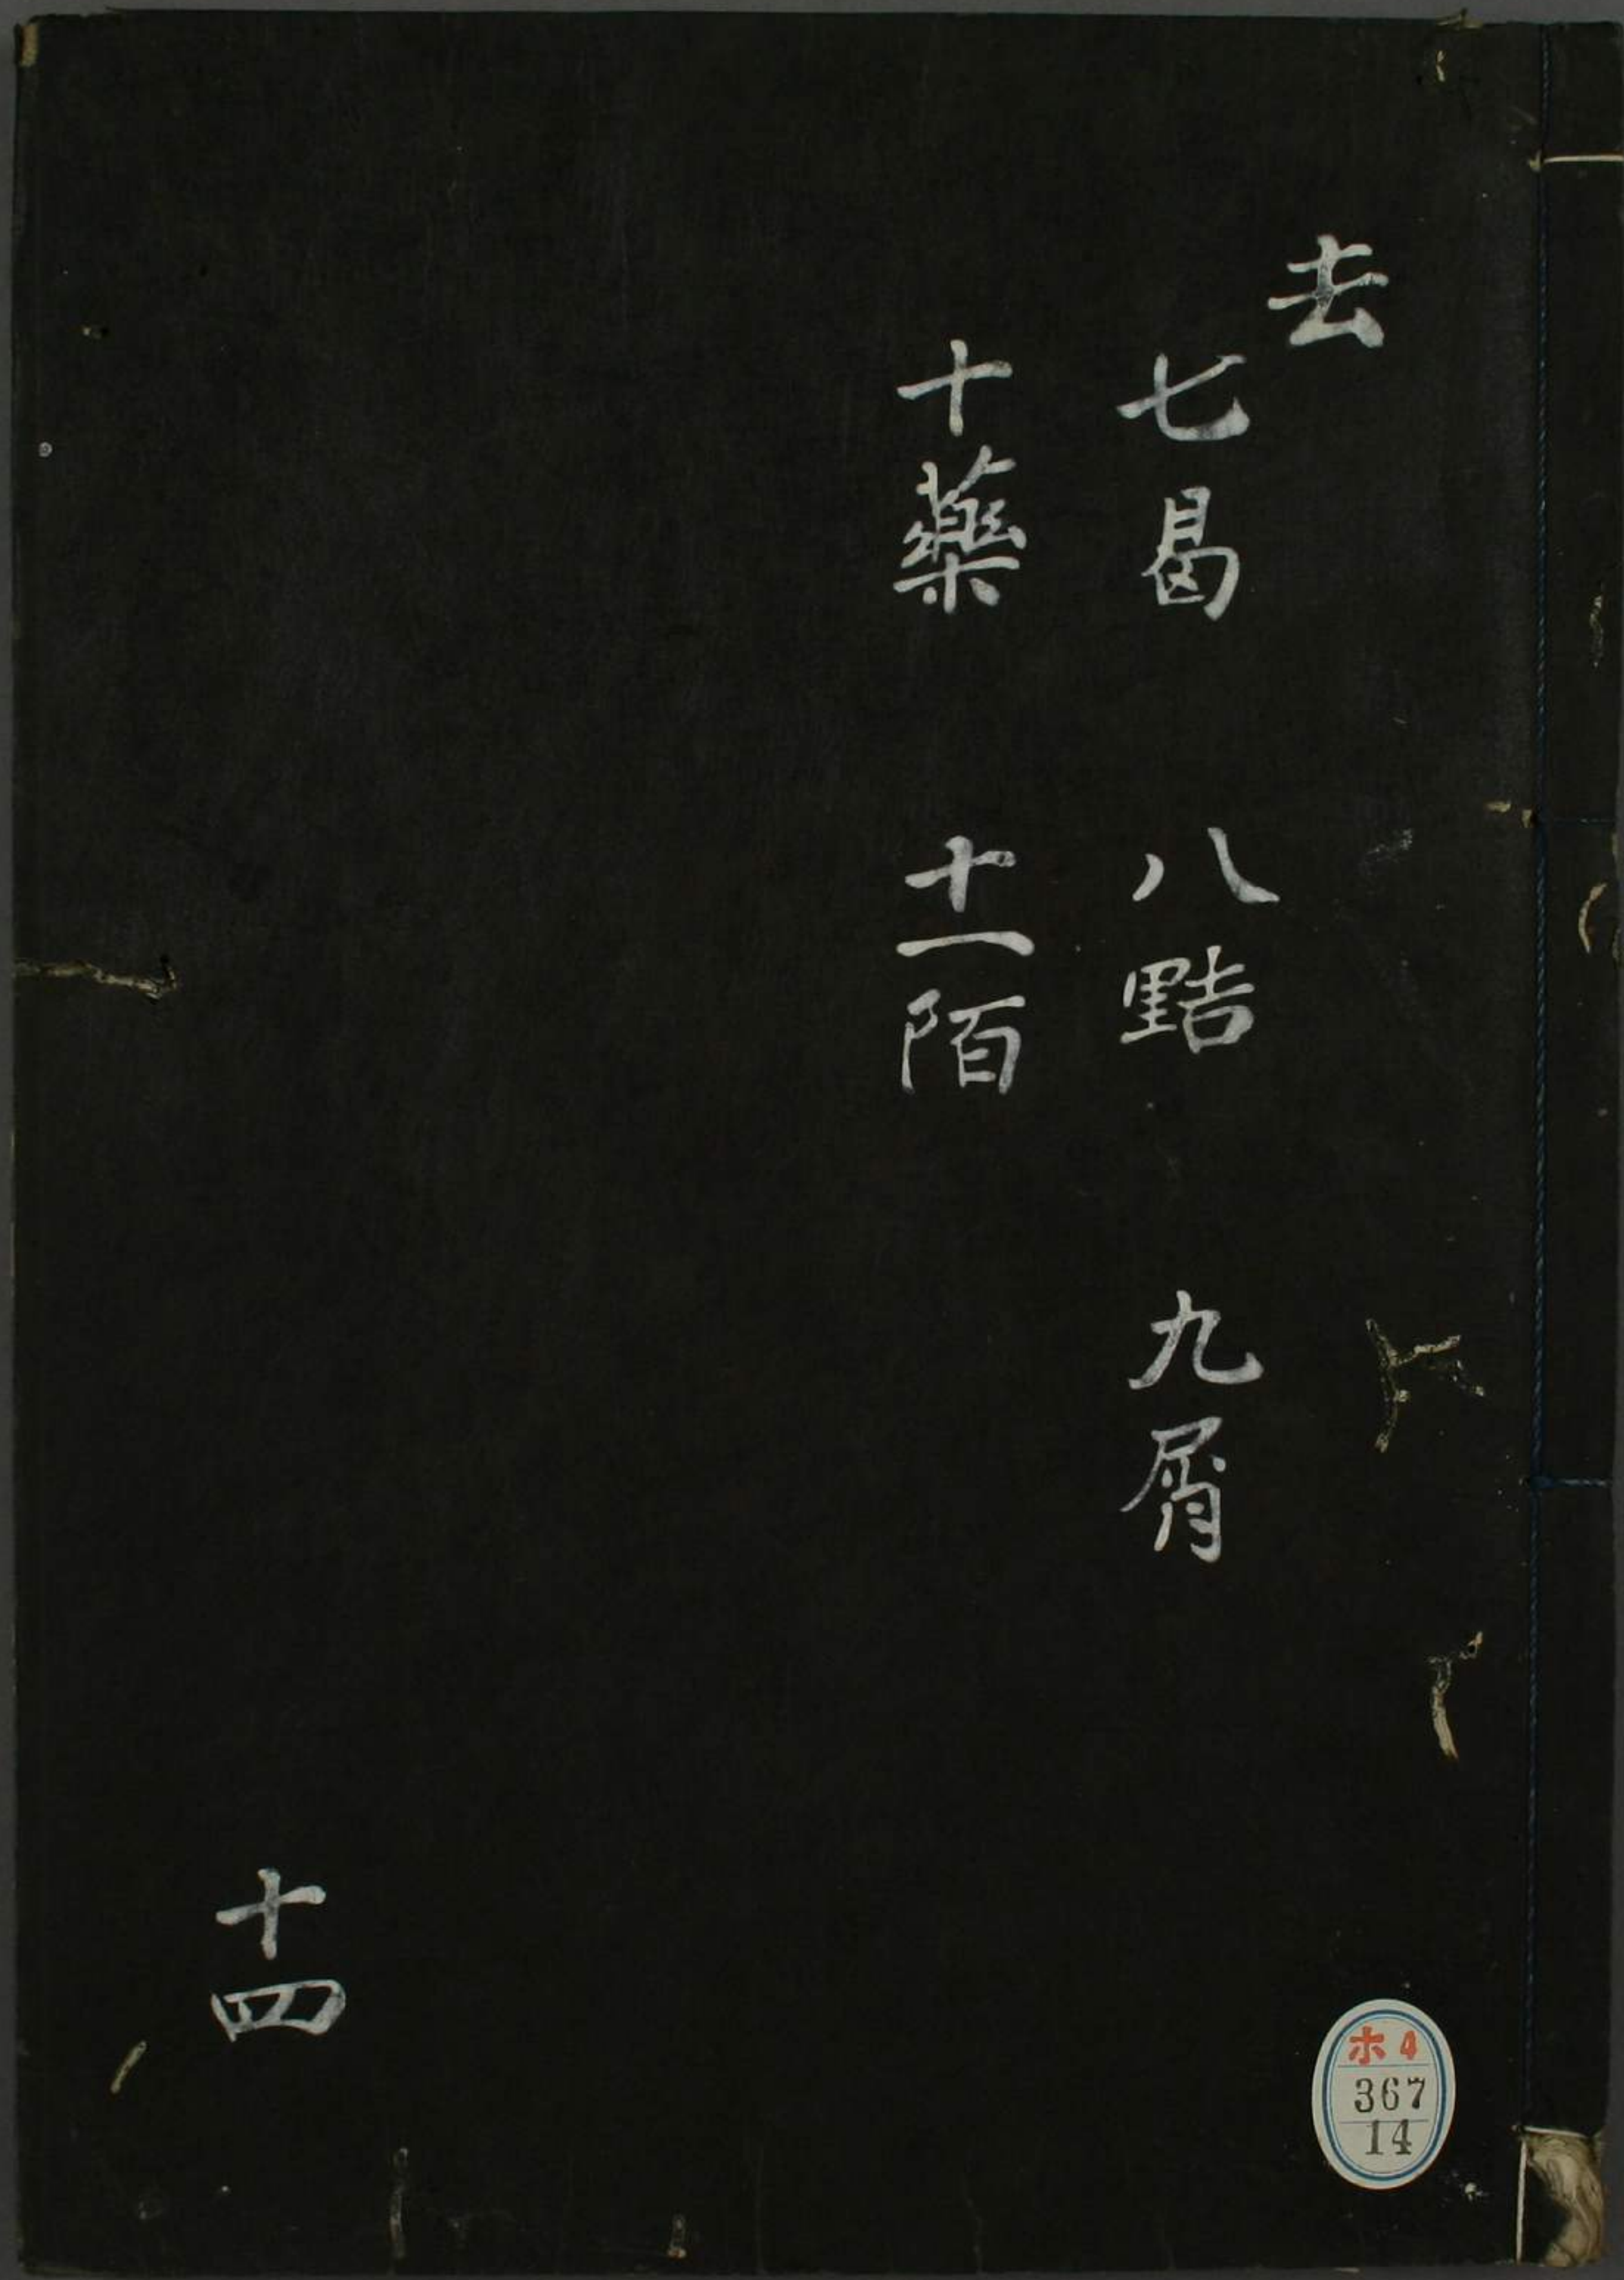 去
七曷 八黠 九屑
十藥 十一陌
十四
ホ4
367
14